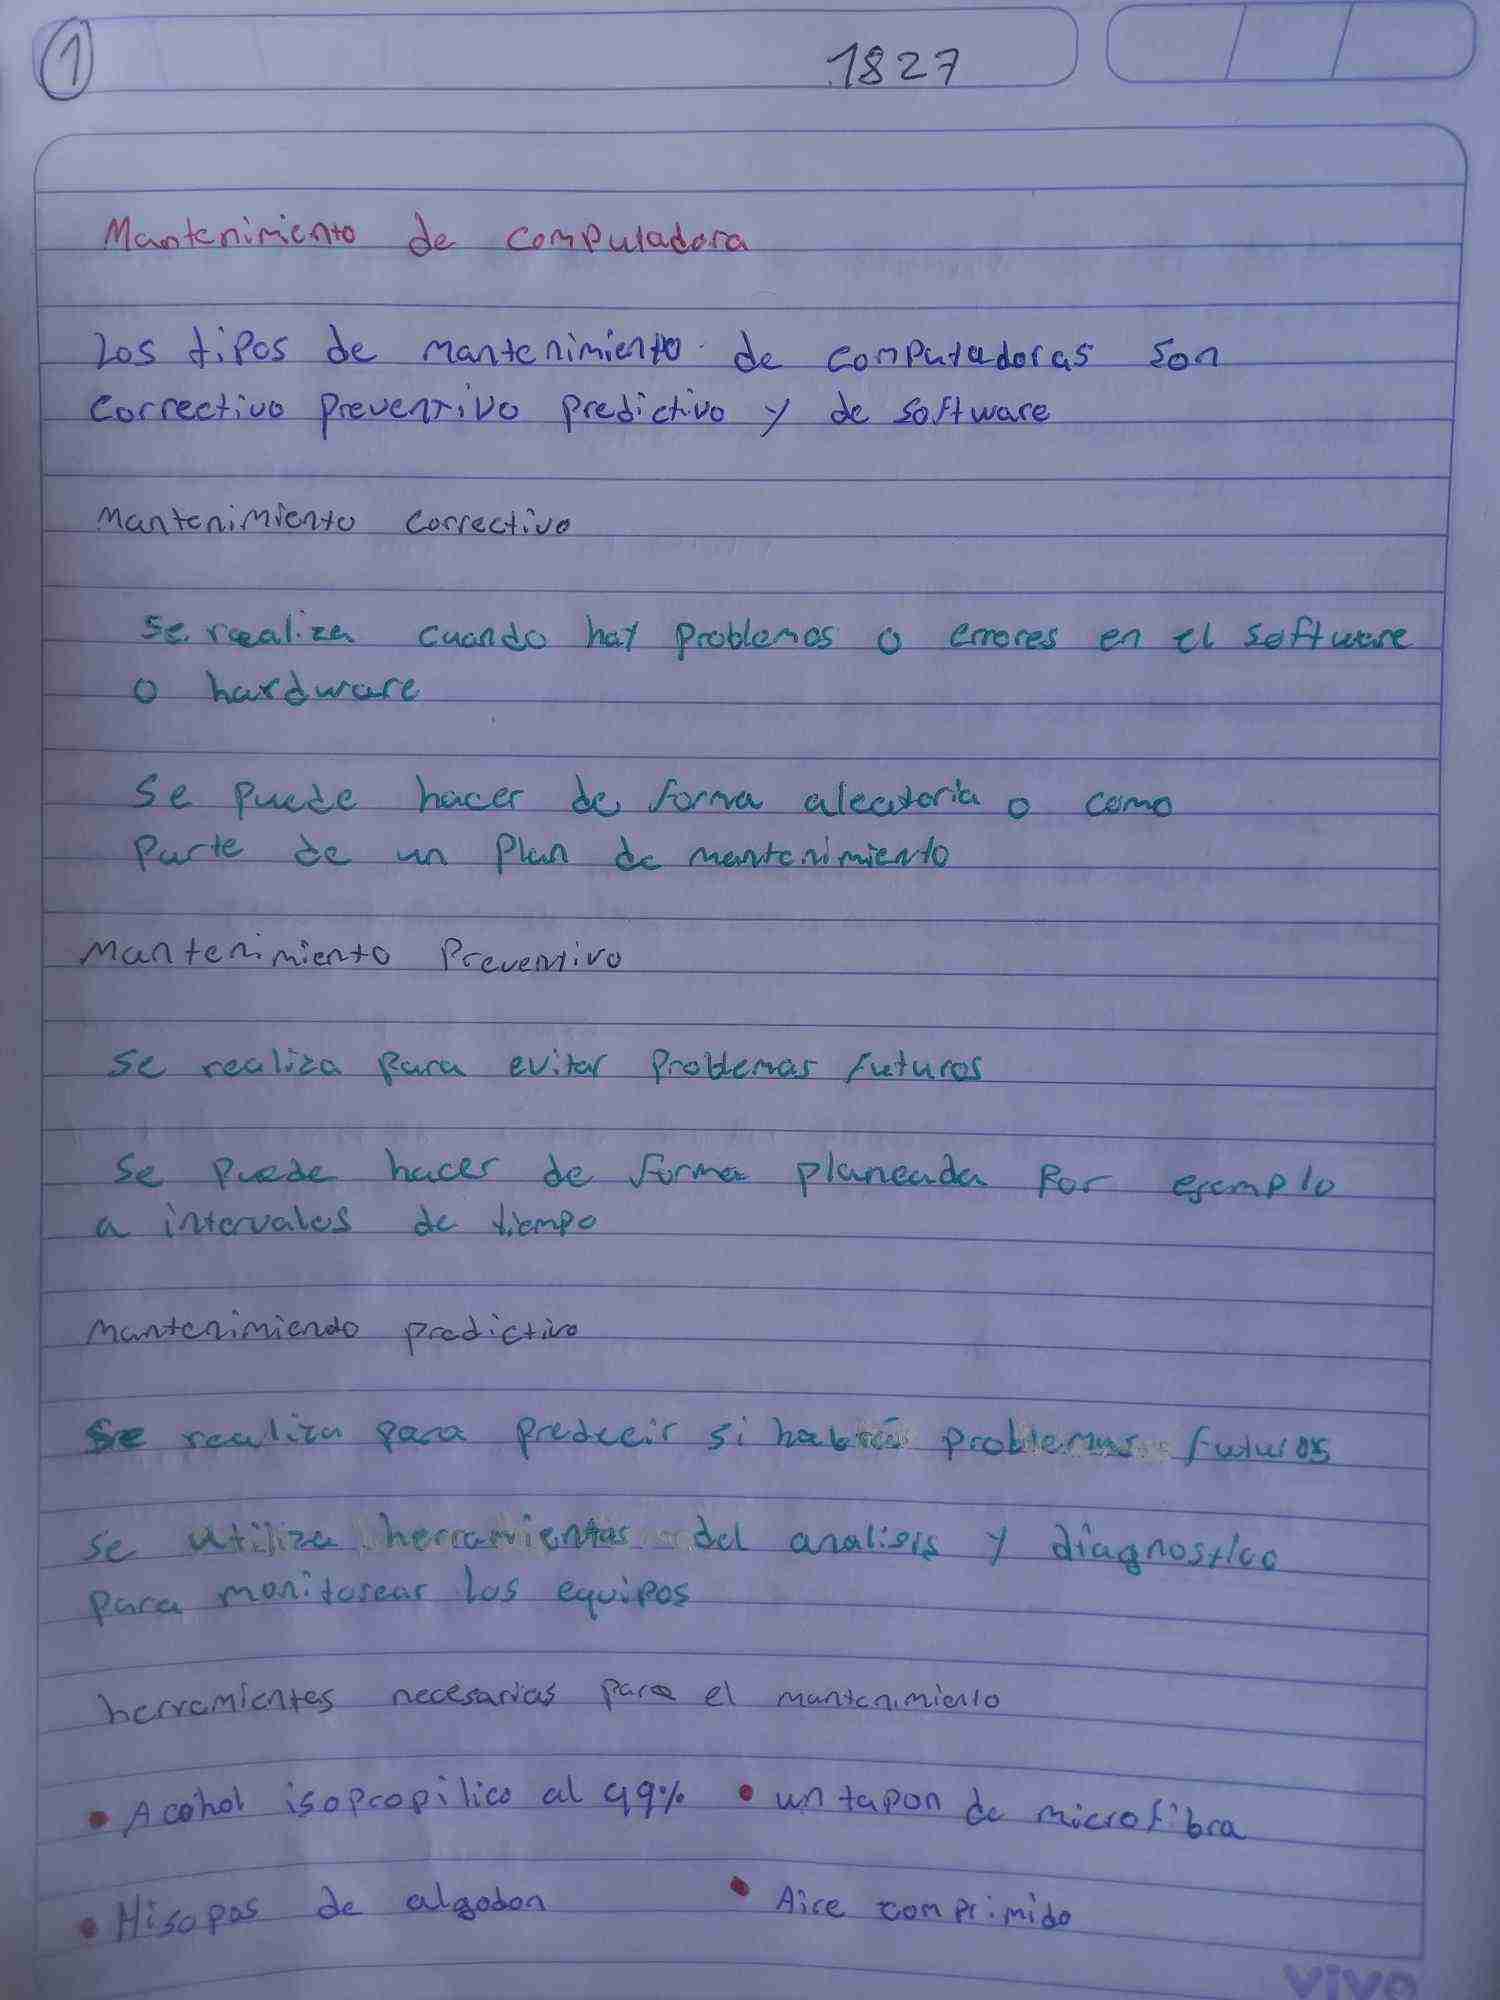 1
1827
Mantenimiento de compuladora
Los tipos de mantenimiento de computadoras son
correctivo preventivo predictivo y de software
Mantenimiento correctivo
se realiza cuando hay problemas o errores en el software
o hardware
se puede hacer de forma aleatoria o como
parte de un plan de mantenimiento
Mantenimiento Preventivo
se realiza para evitar problemas futuros
se puede hacer de forma planeada por ejemplo
a intervalos de tiempo
mantenimiendo predictivo
se realiza para predecir si habrá problemas futuros
se utiliza herramientas del analisis y diagnostico
para monitorear los equipos
herramientes necesarias para el mantenimiento
• Acohol isopropilico al 99% • un tapon de microfibra
• Hisopos de algodon • Aire comprimido
vivo